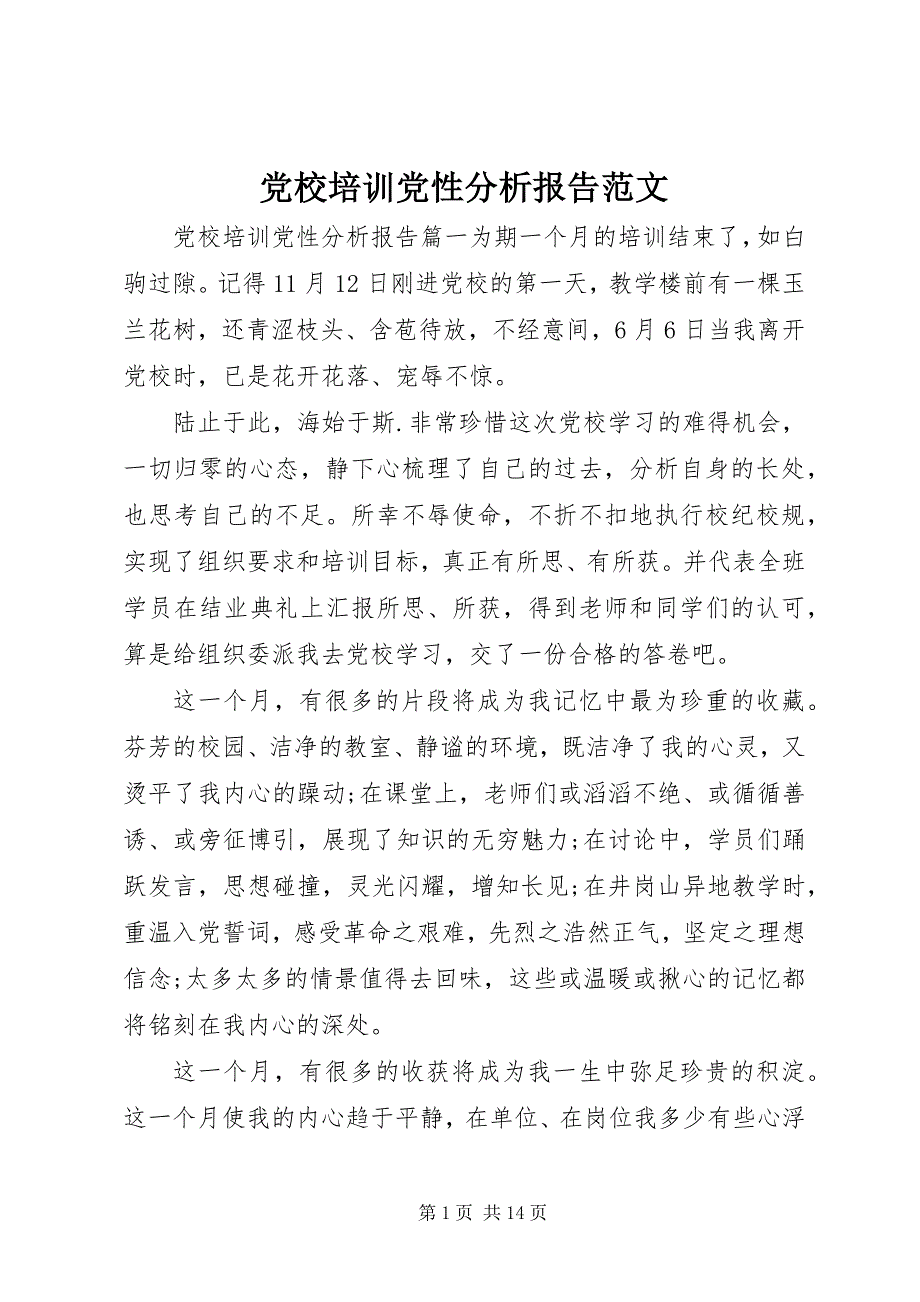 党校培训党性分析报告范文
党校培训党性分析报告篇一为期一个月的培训结束了，如白
驹过隙。记得 11 月 12 日刚进党校的第一天，教学楼前有一棵玉
兰花树，还青涩枝头、含苞待放，不经意间，6 月 6 日当我离开
党校时，已是花开花落、宠辱不惊。
陆止于此，海始于斯.非常珍惜这次党校学习的难得机会，
一切归零的心态，静下心梳理了自己的过去，分析自身的长处，
也思考自己的不足。所幸不辱使命，不折不扣地执行校纪校规，
实现了组织要求和培训目标，真正有所思、有所获。并代表全班
学员在结业典礼上汇报所思、所获，得到老师和同学们的认可，
算是给组织委派我去党校学习，交了一份合格的答卷吧。
这一个月，有很多的片段将成为我记忆中最为珍重的收藏。
芬芳的校园、洁净的教室、静谧的环境，既洁净了我的心灵，又
烫平了我内心的躁动;在课堂上，老师们或滔滔不绝、或循循善
诱、或旁征博引，展现了知识的无穷魅力;在讨论中，学员们踊
跃发言，思想碰撞，灵光闪耀，增知长见;在井岗山异地教学时，
重温入党誓词，感受革命之艰难，先烈之浩然正气，坚定之理想
信念;太多太多的情景值得去回味，这些或温暖或揪心的记忆都
将铭刻在我内心的深处。
这一个月，有很多的收获将成为我一生中弥足珍贵的积淀。
这一个月使我的内心趋于平静，在单位、在岗位我多少有些心浮
第 1 页 共 14 页